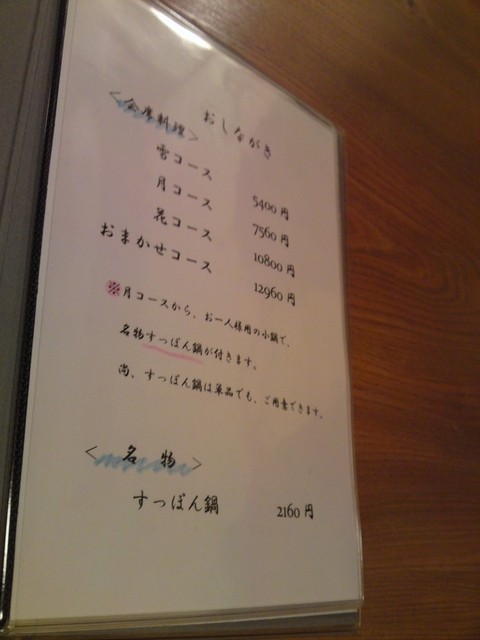 おしながき
<会席料理>
雪コース 5400円
月コース 7560円
花コース 10800円
おまかせコース 12960円
※月コースから、お一人様用の小鍋で、
名物すっぽん鍋が付きます。
尚、すっぽん鍋は単品でも、ご用意できます。
<名物>
すっぽん鍋 2160円